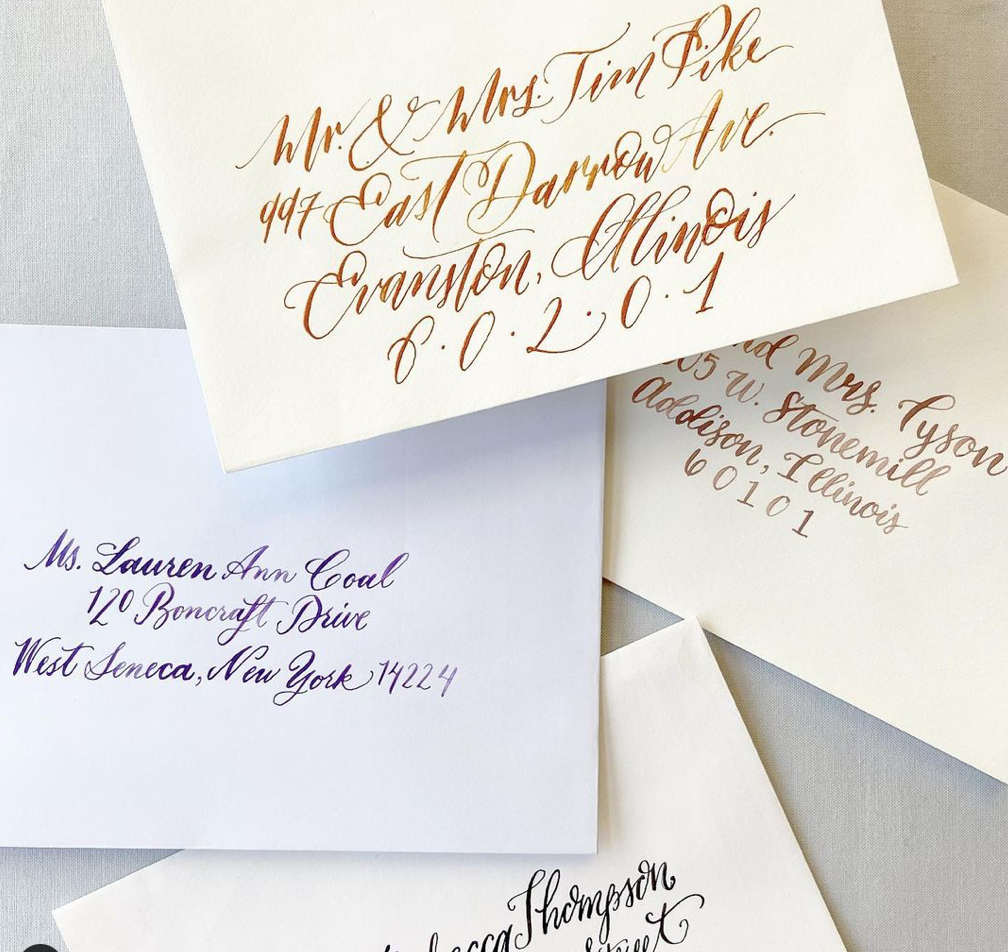 Mr. & Mrs. Tim Pike
997 East Darrow Ave.
Evanston, Illinois
6·0·2·0·1
Mrs. Tyson
W. Stonemill
Addison, Illinois
60101
Ms. Lauren Ann Coal
120 Boncraft Drive
West Seneca, New York 14224
Thompson